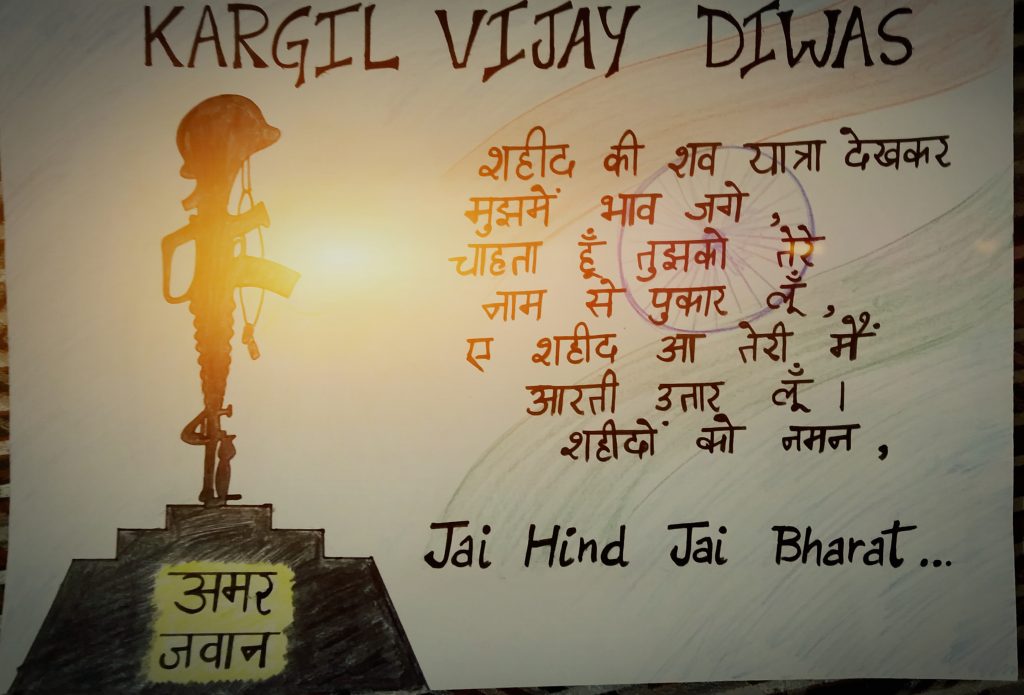 KARGIL VIJAY DIWAS
शहीद की शव यात्रा देखकर
मुझमें भाव जगे ,
चाहता हूँ तुझको तेरे
नाम से पुकार लूँ ,
ए शहीद आ तेरी मैं
आरती उतार लूँ ।
शहीदों को नमन ,
Jai Hind Jai Bharat...
अमर
जवान